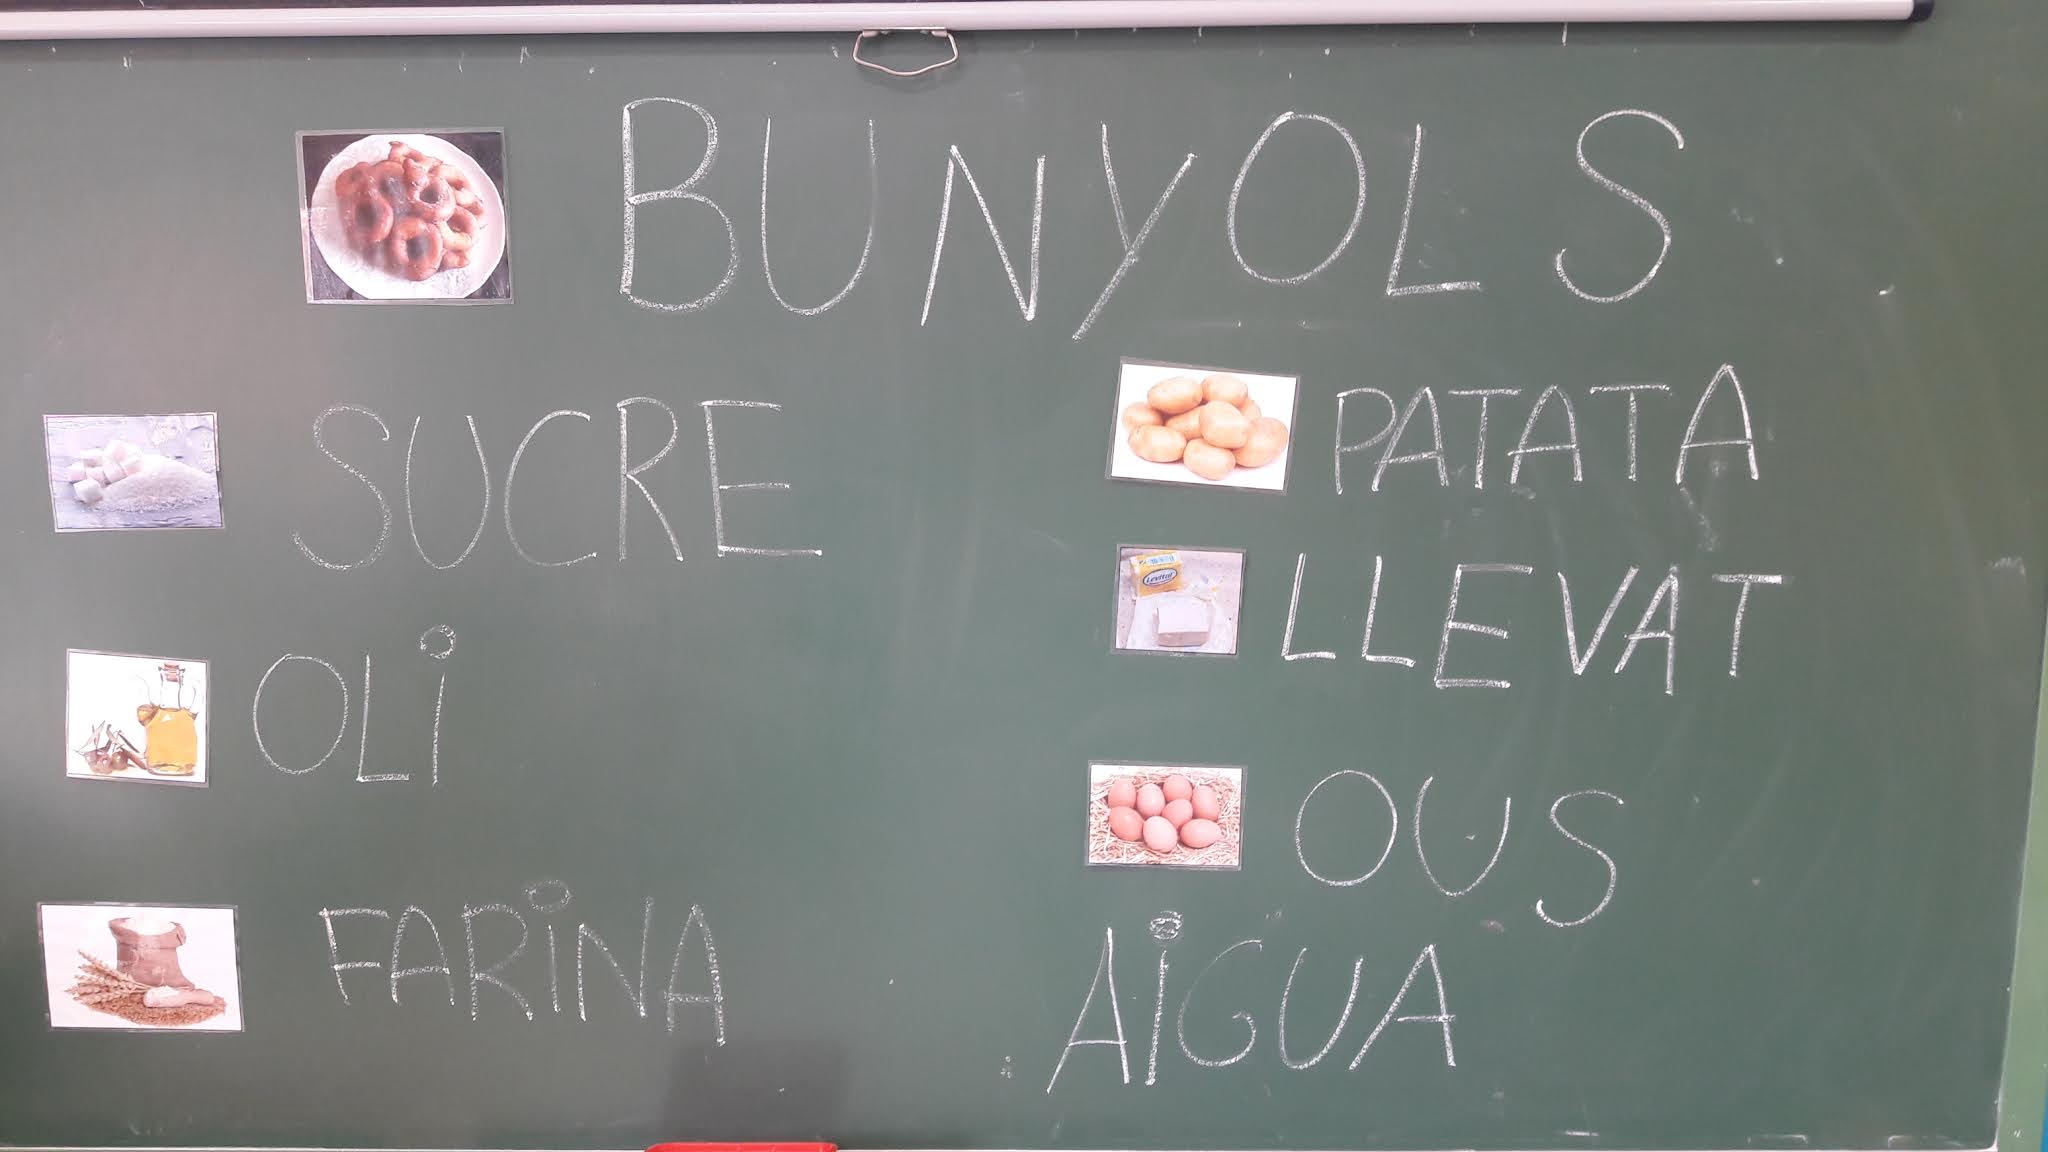 BUNYOLS
SUCRE
OLi
FARiNA
PATATA
LLEVAT
Levital
OUS
AiGUA